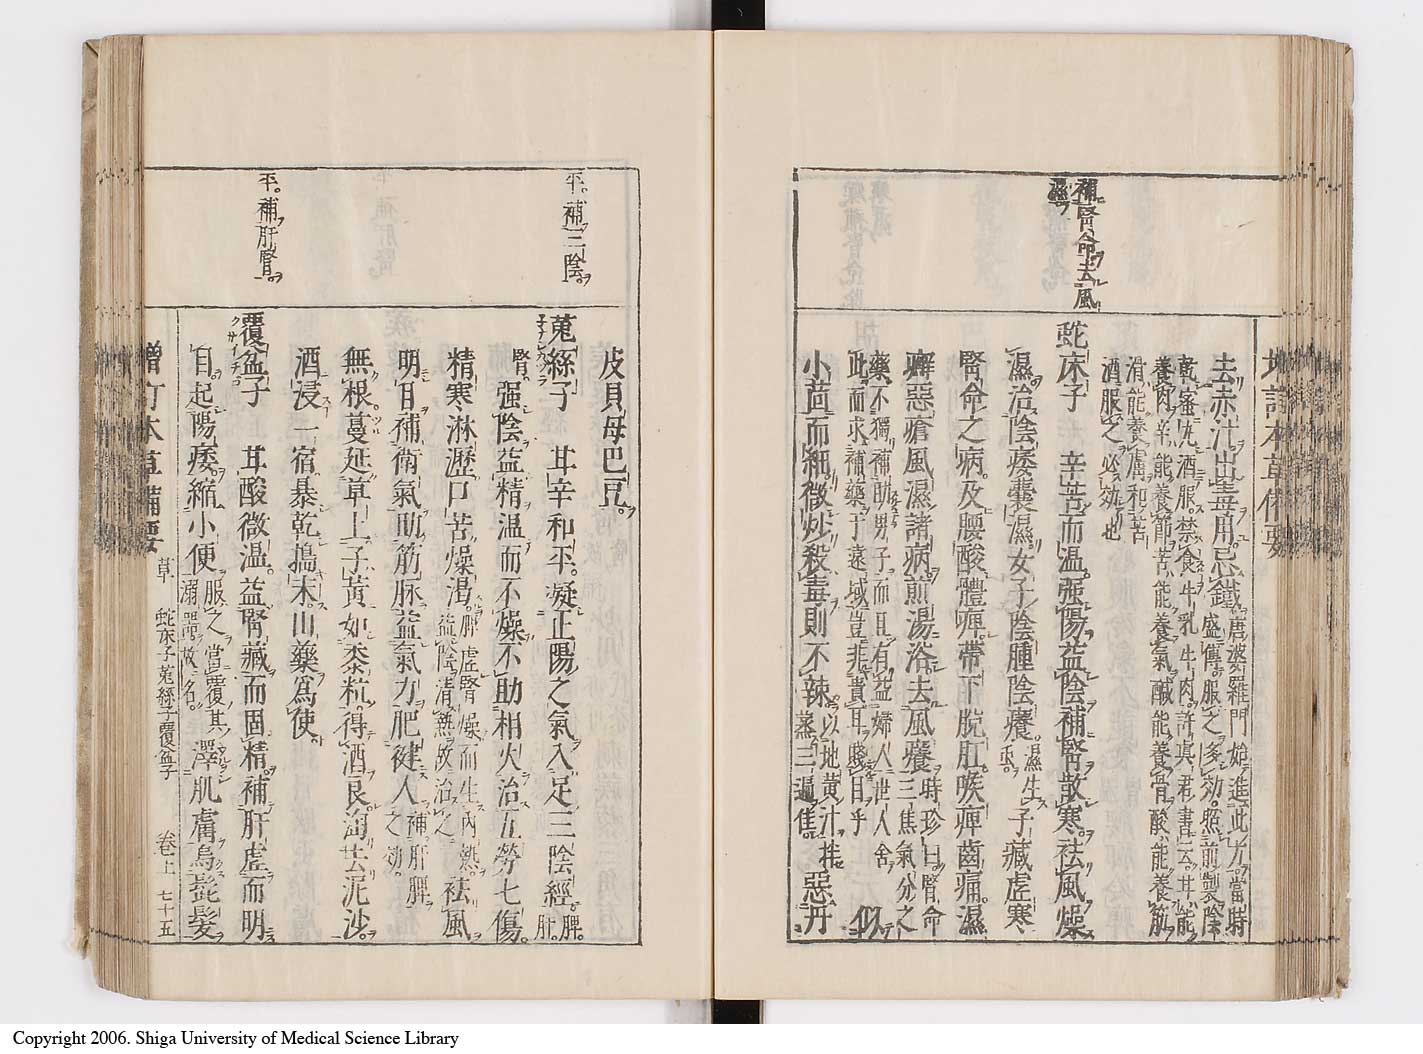 補腎命去風
濕
去赤汁出毒用。忌鐵。唐婆羅門始進此方當時盛傳。服之多効。照前製陰
乾蜜丸酒服。禁食牛乳牛肉。許眞君書云。甘能
養肉辛能養節苦能養氣鹹能養骨酸能養筋
滑能養膚和苦
酒服之必効也
蛇床子 辛苦而温强陽益陰補腎散寒。祛風燥
濕治陰痿囊濕。女子陰腫陰癢濕生虫。子藏虚寒
腎命之病。及腰酸體痺帶下脫肛。喉痺齒痛。濕
癬惡瘡風濕諸病煎湯浴。去風癢時珍曰腎命三焦氣分之
藥不獨補助男子而且有益婦人世人舍
此而求補藥于遠域豈非貴耳賤目乎 似
小茴而細微炒殺毒則不辣。以地黃汁拌蒸三遍佳。惡丹
皮貝母巴豆。
平。補三陰。
平。補肝腎。
菟絲子 甘辛和平。凝正陽之氣入足三陰經。脾肝
腎。强陰益精温而不燥。不助相火治五勞七傷。
精寒淋瀝口苦燥渴。脾虚腎燥而生內熱。益陰清熱故治之 祛風
明目補衛氣助筋脉益氣力肥健人補肝脾之効。
無根蔓延草上子黃如黍粒。得酒良淘去泥沙。
酒浸一宿暴乾搗末。山藥爲使。
覆盆子 甘酸微温。益腎藏而固精補肝虚而明
クサイチゴ
目起陽痿。縮小便服之當覆其溺器故名。澤肌膚烏髭髮
增訂本草備要 草 蛇床子菟絲子覆盆子 卷上 七十五
Copyright 2006. Shiga University of Medical Science Library